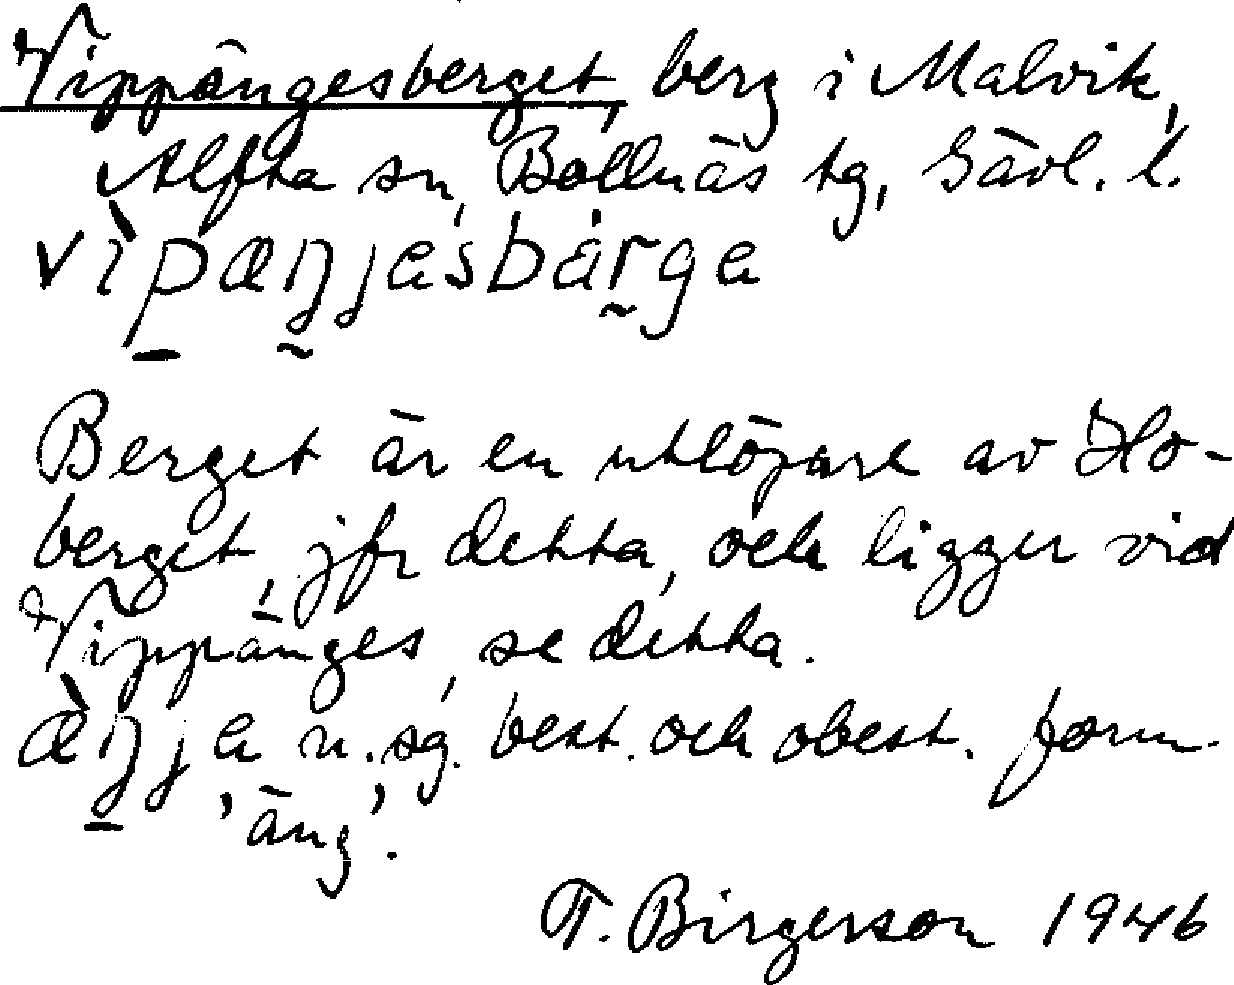 Vippängesberget, berg i Malvik,
Alfta sn, Bollnäs tg, Gävl. l.
vìpæŋjesbárge
Berget är en utlöpare av Ho-
berget, jfr detta, och ligger vid
Vippänges, se detta.
æ̀ŋje n. sg. best. och obest. form.
'äng'.
T. Birgerson 1946